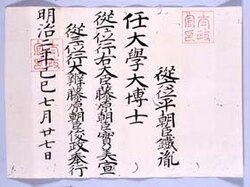 從六位平朝臣鐵胤
任大學大博士
從一位行右大臣藤原朝臣實美宣
從四位行大辨藤原朝臣俊政奉行
明治二年己巳七月廿七日
太政官印